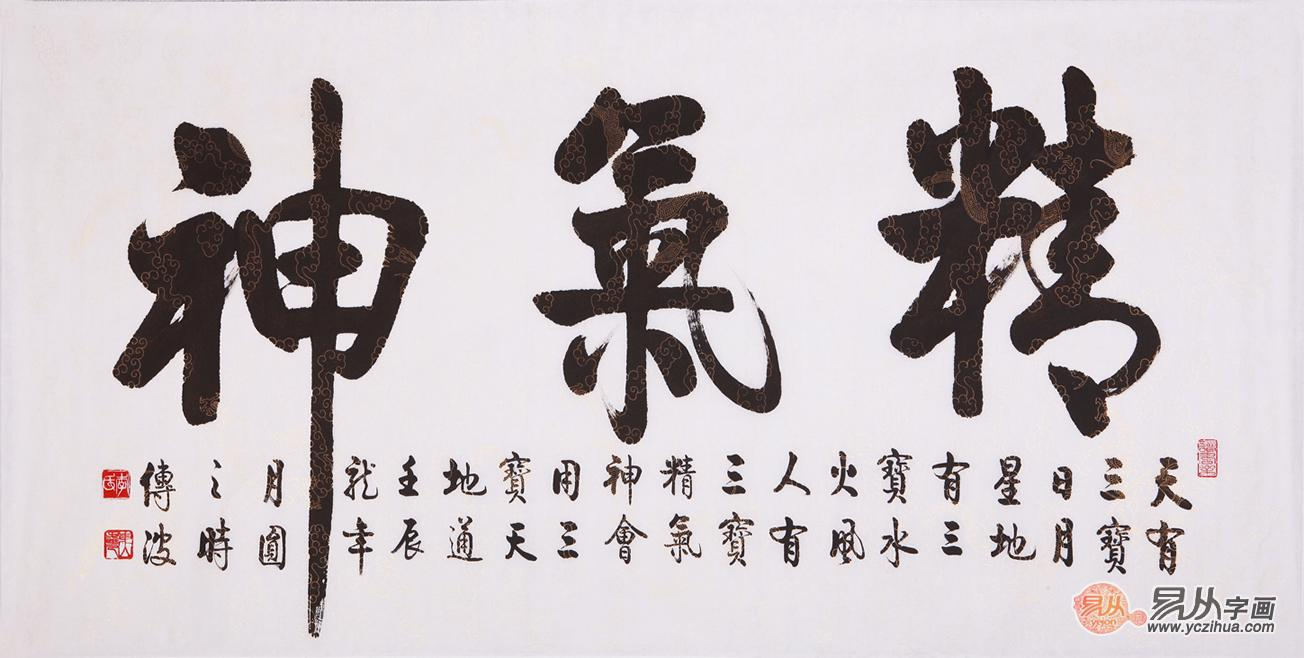 精氣神
天有
三寶
日月
星地
有三
寶水
火風
人有
三寶
精氣
神會
用三
寶天
地通
壬辰
龍年
月圓
之時
傳波
易从字画
yexon
www.yczihua.com